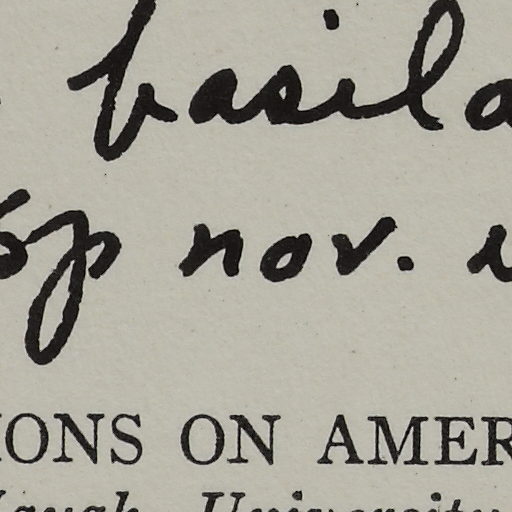 basila
sp nov. i
IONS ON AMER
augh, University